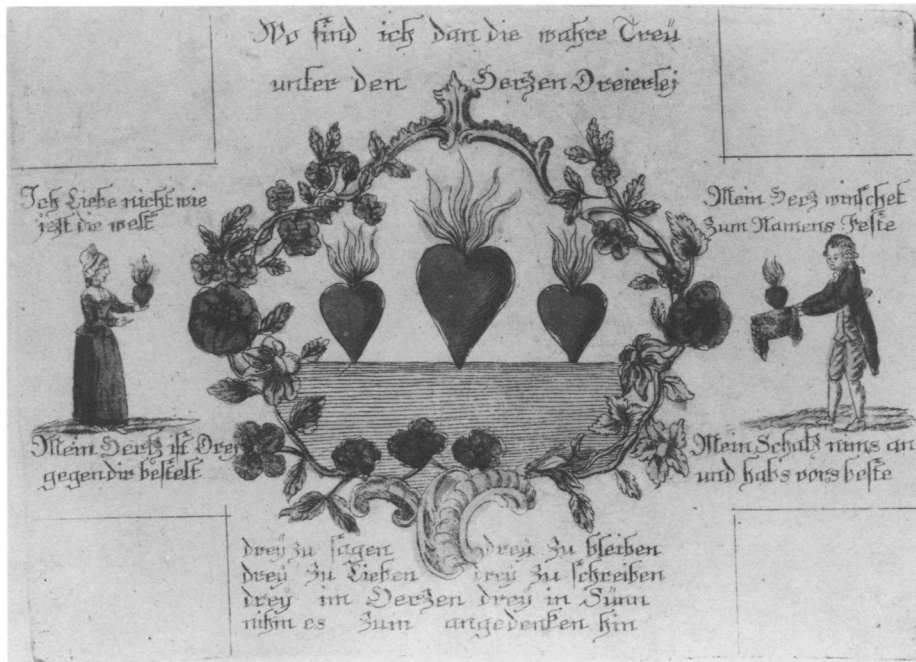 Wo find ich dan die wahre Treü
unter den Herzen Dreierlej
Ich Liebe nicht wie
jezt die welt
Mein Hertz ist Drey
gegen dir bestelt
Mein Herz winschet
Zum Namens Feste
Mein Schatz nims an
und habs vors beste
dreÿ zu sagen dreÿ zu bleiben
dreÿ zu Lieben dreÿ zu schreiben
dreÿ im Herzen dreÿ in Sünn
nihm es zum angedenken hin